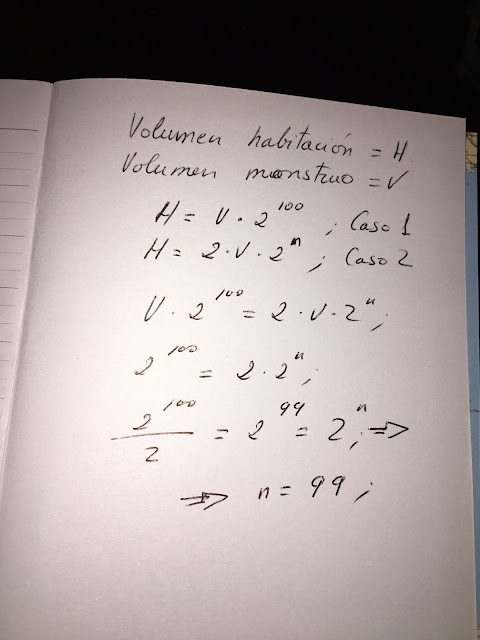 Volumen habitación = H
Volumen monstruo = V
H = V · 2^100 ; Caso 1
H = 2 · V · 2^n ; Caso 2
V · 2^100 = 2 · V · 2^n ;
2^100 = 2 · 2^n ;
2^100 / 2 = 2^99 = 2^n ; =>
=> n = 99 ;